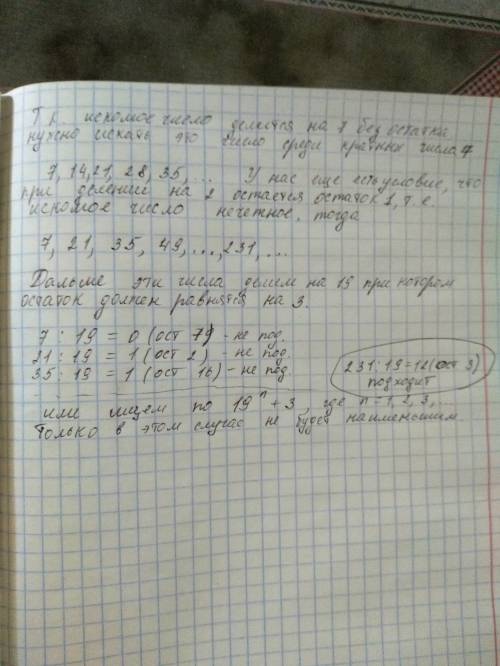 Т.к. искомое число делится на 7 без остатка
нужно искать это число среди кратных числа 7
7, 14, 21, 28, 35, ... У нас еще есть условие, что
при делении на 2 остается остаток 1, т.е.
искомое число нечетное, тогда
7, 21, 35, 49, ..., 231, ...
Дальше эти числа делем на 19 при котором
остаток должен равнятся на 3.
7 : 19 = 0 (ост 7) - не под.
21 : 19 = 1 (ост 2) - не под.
35 : 19 = 1 (ост 16) - не под.
231 : 19 = 12 (ост 3)
подходит
или ищем по 19ⁿ + 3, где n = 1, 2, 3, ...
только в этом случае не будет наименьшим